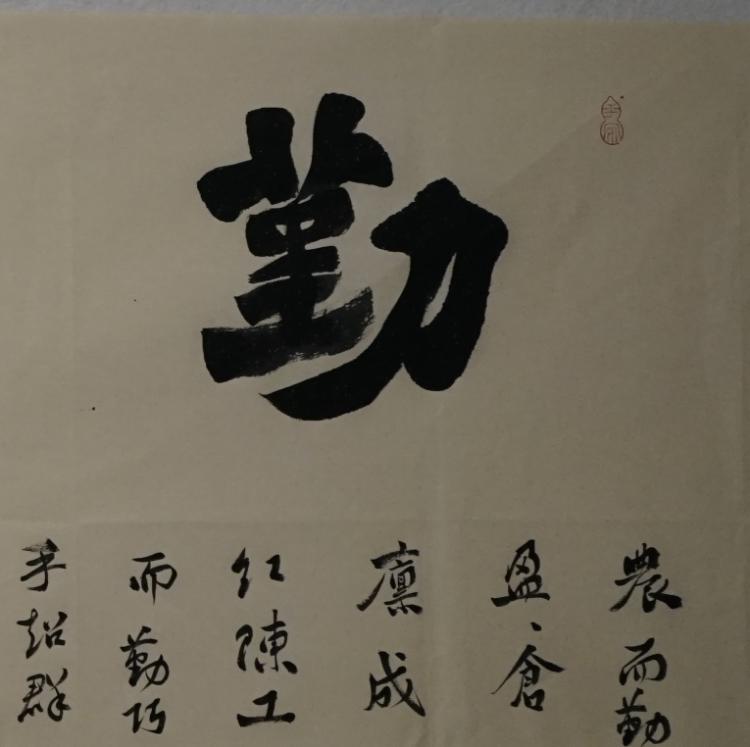 勤
農而勤
盈、倉
廪成
红陳工
而勤巧
手超群